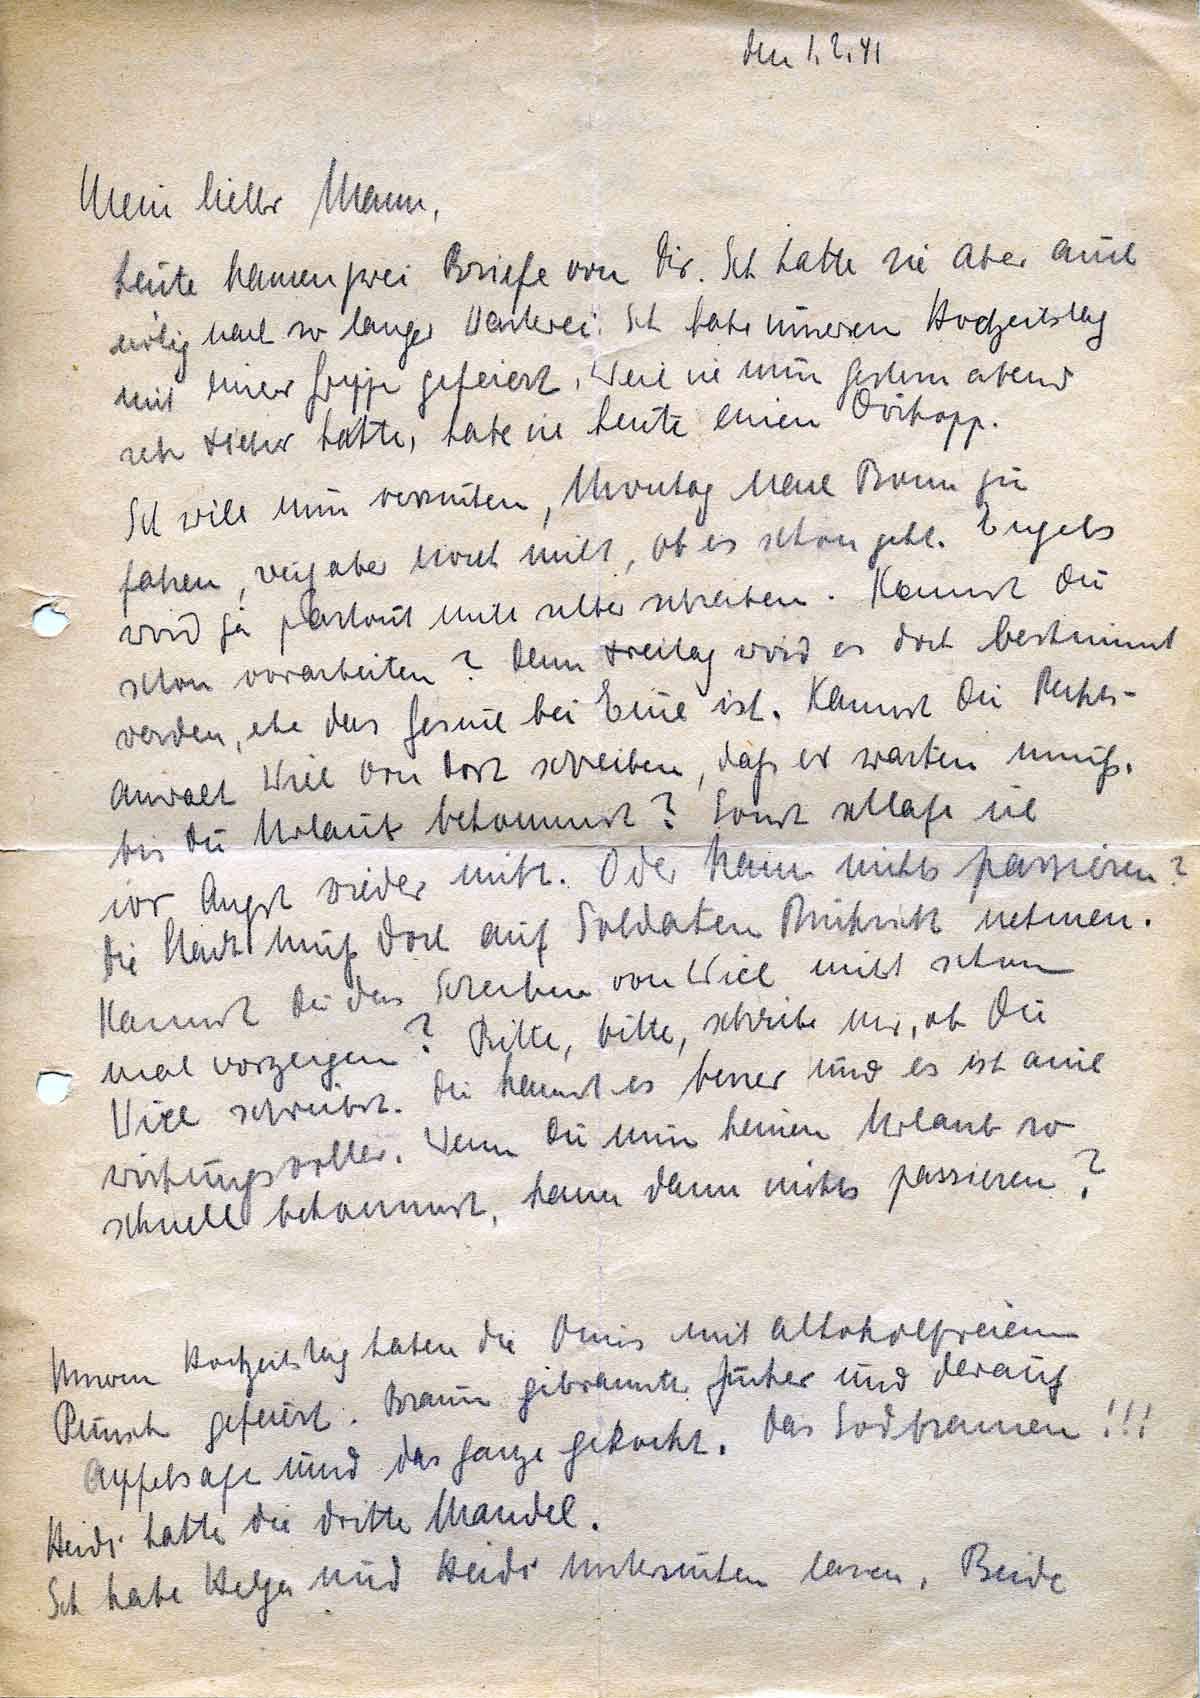 den 1.2.41
Mein lieber Mann,
heute kamen zwei Briefe von Dir. Ich hatte sie aber auch
nötig nach so langer Warterei. Ich habe unseren Hochzeitstag
mit einer Grippe gefeiert. Weil ich nun gestern abend
sehr Fieber hatte, habe ich heute einen Döskopp.
Ich will nun versuchen, Montag nach Bonn zu
fahren, weiß aber noch nicht, ob es schon geht. Engels
wird ja partout nicht selber schreiben. Kannst Du
schon vorarbeiten? Denn Freitag wird es doch bestimmt
werden, ehe das Gesuch bei Euch ist. Kannst Du Rechts-
anwalt Viell von dort schreiben, daß er warten muß,
bis Du Urlaub bekommst? Sonst schlafe ich
vor Angst wieder nicht. Oder kann nichts passieren?
Die Stadt muß doch auf Soldaten Rücksicht nehmen.
Kannst Du das Schreiben von Viell nicht schon
mal vorzeigen? Bitte, bitte, schreibe mir, ob Du
Viell schreibst. Du kannst es besser und es ist auch
wirkungsvoller. Wenn Du nun keinen Urlaub so
schnell bekommst, kann dann nichts passieren?
Unseren Hochzeitstag haben die mit alkoholfreiem
Punsch gefeiert. Braun gebrannter Zucker und darauf
Apfelsaft und das ganze gekocht. Das Sodbrennen!!!
Heidi hatte die dritte Mandel.
Ich habe Helga und Heidi untersuchen lassen. Beide